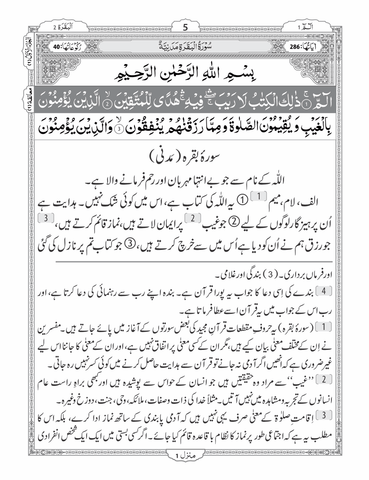 البقرۃ 2
5
الٓمّٓ 1
رکوعاتھا: 40
سُوْرَۃُ الْبَقَرَۃِ مَدَنِیَّۃٌ
اٰیاتھا: 286
بِسْمِ اللّٰهِ الرَّحْمٰنِ الرَّحِیْمِ
الٓمّٓ ۚ﴿۱﴾ ذٰلِكَ الْكِتٰبُ لَا رَیْبَ ۖ فِیْهِ ۚ هُدًی لِّلْمُتَّقِیْنَ ﴿۲﴾ الَّذِیْنَ یُؤْمِنُوْنَ
بِالْغَیْبِ وَ یُقِیْمُوْنَ الصَّلٰوةَ وَ مِمَّا رَزَقْنٰهُمْ یُنْفِقُوْنَ ﴿۳﴾ وَالَّذِیْنَ یُؤْمِنُوْنَ
سورۂ بقرہ (مدنی)
اللہ کے نام سے جو بے انتہا مہربان اور رحم فرمانے والا ہے۔
الف، لام، میم [1] ① یہ اللہ کی کتاب ہے، اس میں کوئی شک نہیں۔ ہدایت ہے
اُن پرہیز گار لوگوں کے لیے ② جو غیب [2] پر ایمان لاتے ہیں، نماز قائم کرتے ہیں، [3]
جو رزق ہم نے اُن کو دیا ہے اُس میں سے خرچ کرتے ہیں، ③ جو کتاب تم پر نازل کی گئی
اور فرماں برداری۔ (3) بندگی اور غلامی۔
[4] بندے کی اِسی دعا کا جواب یہ پورا قرآن ہے۔ بندہ اپنے رب سے رہنمائی کی دعا کرتا ہے، اور
رب اس کے جواب میں یہ قرآن اسے عطا فرماتا ہے۔
[1] (سورۂ بقرہ) یہ حروفِ مقطعات قرآنِ مجید کی بعض سورتوں کے آغاز میں پائے جاتے ہیں۔ مفسرین
نے اِن کے مختلف معنی بیان کیے ہیں، مگر ان کے کسی معنی پر اتفاق نہیں ہے، اور ان کے معنی کا جاننا اس لیے
غیر ضروری ہے کہ اُنھیں اگر آدمی نہ جانے تو قرآن سے ہدایت حاصل کرنے میں کوئی کسر نہیں رہ جاتی۔
[2] ”غیب“ سے مراد وہ حقیقتیں ہیں جو انسان کے حواس سے پوشیدہ ہیں اور کبھی براہِ راست عام
انسانوں کے تجربہ و مشاہدہ میں نہیں آتیں۔ مثلاً خدا کی ذات و صفات، ملائکہ، وحی، جنت، دوزخ وغیرہ۔
[3] اقامتِ صلوٰۃ کے معنی صرف یہی نہیں ہیں کہ آدمی پابندی کے ساتھ نماز ادا کرے، بلکہ اس کا
مطلب یہ ہے کہ اجتماعی طور پر نماز کا نظام باقاعدہ قائم کیا جائے۔ اگر کسی بستی میں ایک ایک شخص انفرادی
منزل 1